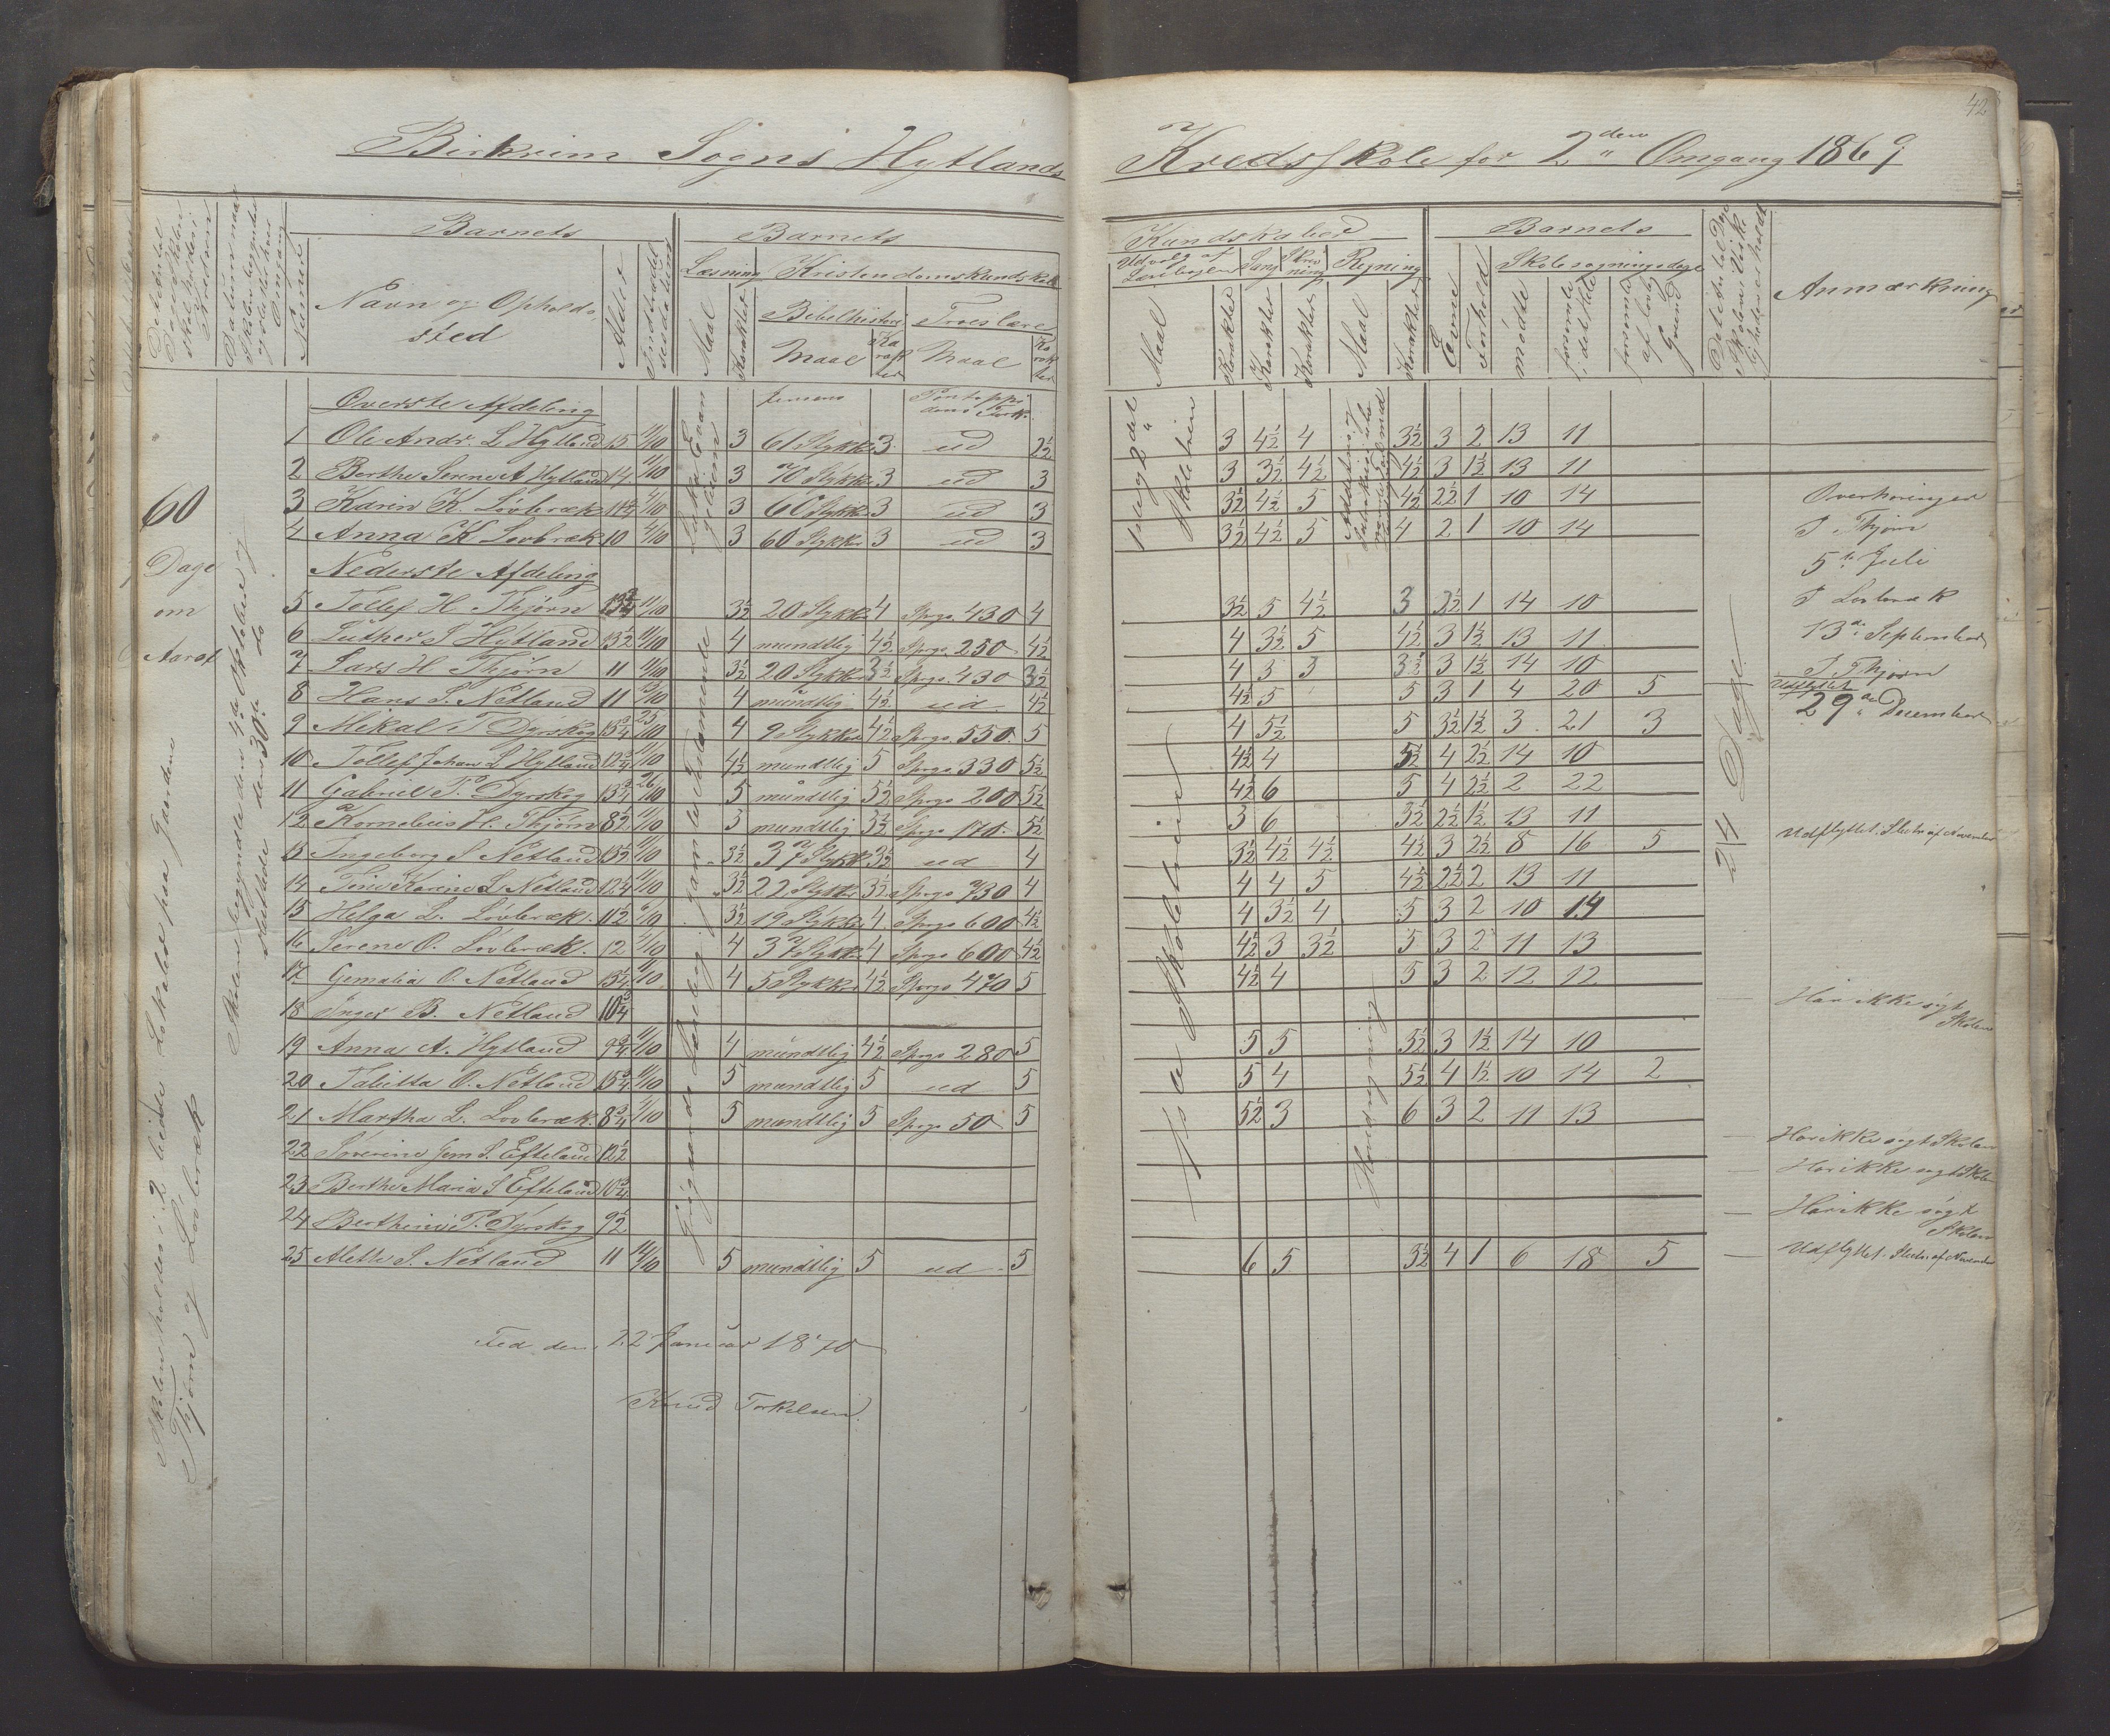 42
Birkrim Sogns Hytlands Kredsskole for 2den Omgang 1869
Datum naar Skolen begyndte og sluttede hver Omgang
Nummer
Barnets
Navn og Opholdssted
Alder
Barnets
Læsning
Kristendomskundskab
Maal
Karakter
Bibelhistorie
Troeslære
Maal
Karakter
Maal
Karakter
Kundskaber
Udvalg af Læsebogen
Sang
Skrivning
Regning
Maal
Karakter
Karakter
Karakter
Maal
Karakter
Barnets
Evne
Forhold
Skolesøgningsdage
mødte
forsømte i det Hele
forsømte af lovlig Grund
Anmærkning
60
Dage
om
Aaret
Skolen begyndte den 4de Oktober og
sluttede den 30te do
Skolen holdes i 2 leiede Lokaler paa Gaardene
Thjørn og Lovbræk
Overste Afdeling
Jensens
Pontoppidans Fork.
1 Ole Andr. L Hytland 15 11/10 3 61 Stykker 3 ud 2½ 3 4½ 4 3½ 3 2 13 11
2 Berthe Serene A Hytland 14 11/10 3 70 Stykker 3 ud 3 3 3½ 4½ 4½ 3 1½ 13 11
3 Karin K. Lovbræk 11¾ 4/10 3 60 Stykker 3 ud 3 3½ 4½ 5 4½ 2½ 1 10 14
4 Anna K Lovbræk 10 4/10 3 60 Stykker 3 ud 3 3½ 4½ 5 4 2 1 10 14
Nederste Afdeling
5 Tollef H Thjørn 13¾ 11/10 3½ 20 Stykker 4 Sprgs. 430 4 3½ 5 4½ 3 3½ 1 14 10
6 Luther I Hytland 13½ 11/10 4 mundtlig 4½ Sprgs. 250 4½ 4 3½ 5 4½ 3 1½ 13 11
7 Lars H Thjørn 11 11/10 3½ 20 Stykker 3½ Sprgs. 430 3½ 4 3 3 3½ 3 1½ 14 10
8 Hans S. Netland 11 13/10 4 mundtlig 4½ ud 4½ 4½ 5 5 3 1 4 20 5
9 Mekal T Dyrskog 13¾ 25/10 4 9 Stykker 4½ Sprgs. 550 5 4 5½ 5 3½ 1½ 3 21 3
10 Tollef Johan L Hytland 12¾ 11/10 4½ mundtlig 5 Sprgs 330 5½ 4½ 4 5½ 4 2½ 14 10
11 Gabriel T. Dyrskog 13¾ 26/10 5 mundtlig 5½ Sprgs 200 5½ 4½ 6 5 4 2½ 2 22
12 Kornelius H. Thjørn 8½ 11/10 3 mundtlig 5½ Sprgs 170 5½ 3 6 3½ 2½ 1½ 13 11
13 Ingeborg S Netland 13½ 11/10 3½ 37 Stykker 3½ ud 4 3½ 4½ 4½ 4½ 3 2½ 8 16 5
14 Tine Karine L Netland 12¼ 11/10 3½ 22 Stykker 3½ Sprgs 730 4 4 4 5 4½ 2½ 2 13 11
15 Helga L. Lovbræk. 11½ 6/10 3½ 19 Stykker 4 Sprgs 600 4½ 4 3½ 4 5 3 2 10 14
16 Serene O. Lovbræk. 12 4/10 4 37 Stykker 4 Sprgs 600 4½ 4½ 3 3½ 5 3 2 11 13
17 Gemalia O. Netland 13¼ 11/10 4 5 Stykker 4½ Sprgs 470 5 4½ 4 5 3 2 12 12
18 Inger B. Netland 10¾
19 Anna A. Hytland 9¾ 11/10 4 mundtlig 4½ Sprgs 280 5 5 5 5½ 3 1½ 14 10
20 Tabitta O. Netland 15¾ 11/10 5 mundtlig 5 ud 5 5 4 5½ 4 1½ 10 14 2
21 Martha L. Lovbræk. 8¾ 4/10 5 mundtlig 5 Sprgs 50 5 5½ 3 6 3 2 11 13
22 Severine Jem S. Efteland 12½
23 Berthe Maria S Efteland 10¾
24 Berthine T. Dyrskog 9½
25 Alette S. Netland 11 11/10 5 mundtlig 5 ud 5 6 5 3½ 4 1 6 18 5
Hovedregning
24 Dage
Overhøringer
I Thjørn
5te Juli
I Lovbræk
13de September
I Thjørn
29de December
Udflyttet
Udflyttet. Slutn. af November
Har ikke søgt Skolen
Har ikke søgt Skolen
Har ikke søgt Skolen
Har ikke søgt Skolen
Udflyttet. Slutn. af November
den 22 Januar 1870
Knud Torkelsen.